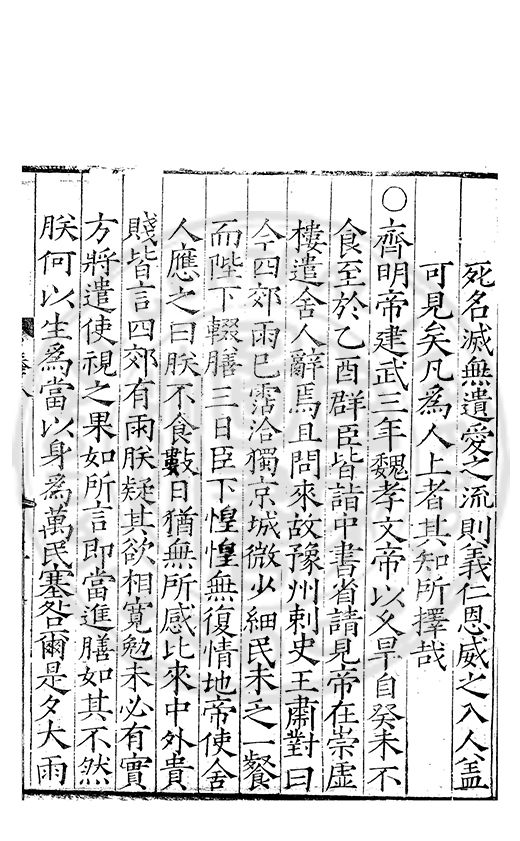 死名滅無遺愛之流則義仁恩威之入人盖
可見矣凡為人上者其知所擇哉
○齊明帝建武三年魏孝文帝以久旱自癸未不
食至於乙酉群臣皆詣中書省請見帝在崇虛
樓遣舍人辭焉且問來故豫州刺史王肅對曰
今四郊雨已霑洽獨京城微少細民未乏一餐
而陛下輟膳三日臣下惶惶無復情地帝使舍
人應之曰朕不食數日猶無所感比來中外貴
賤皆言四郊有雨朕疑其欲相寬勉未必有實
方將遣使視之果如所言即當進膳如其不然
朕何以生為當以身為萬民塞咎爾是夕大雨